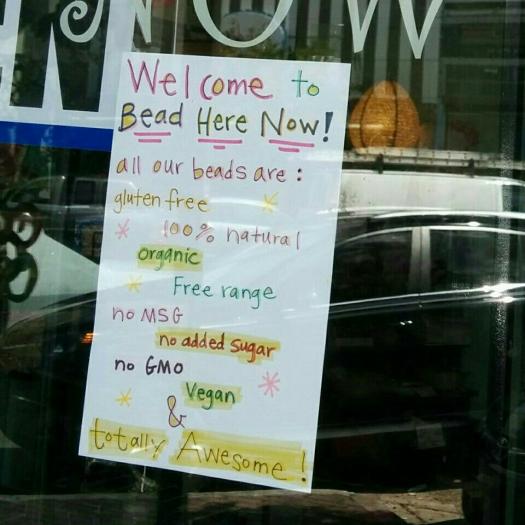 NOW
Welcome to
Bead Here Now!
all our beads are:
gluten free
100% natural
organic
Free range
no MSG
no added sugar
no GMO
Vegan
&
totally Awesome!